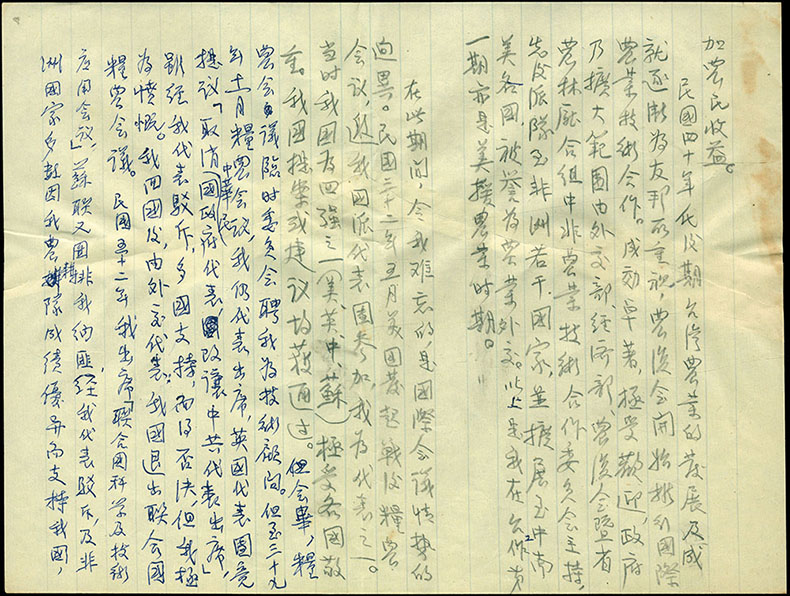 加農民收益。
民國四十年代後期台灣農業的發展及成
就逐漸為友邦所重視,農復會開始推行國際
農業技術合作。成効卓著,極受歡迎,政府
乃擴大範圍由外交部經濟部、農復會暨省
農林廳合組中非農業技術合作委員會主持,
先後派隊至非洲若干國家,並擴展至中南
美各國,被誉為農業外交。以上是我在台作第
一期亦是美援農業時期。
在此期间,令我难忘的,是國際会議情勢的
迥異。民國三十二年五月美国發起戰後糧農
会议,邀我国派代表團參加,我為代表之一。
当时我国為四强之一(美、英、中、蘇)極受各國敬
重,我國提案或建议均获通过。但会畢,糧
農会議臨时委员会聘我為技術顧问。但至三十九
年十一月糧農会议,我仍代表出席,英国代表團竟
提议「取消中華民國政府代表改讓中共代表出席,」
雖經我代表駁斥,多國支持,而得否決但我極
為憤慨。我回國後,由外交代表,我國退出联合國
糧農会議。民國五十二年我出席「联合国科学及技術
应用会议,」蘇联又国非我纳匪,經我代表駁斥,及非
洲國家多起因我農耕隊成績優异而支持我國,